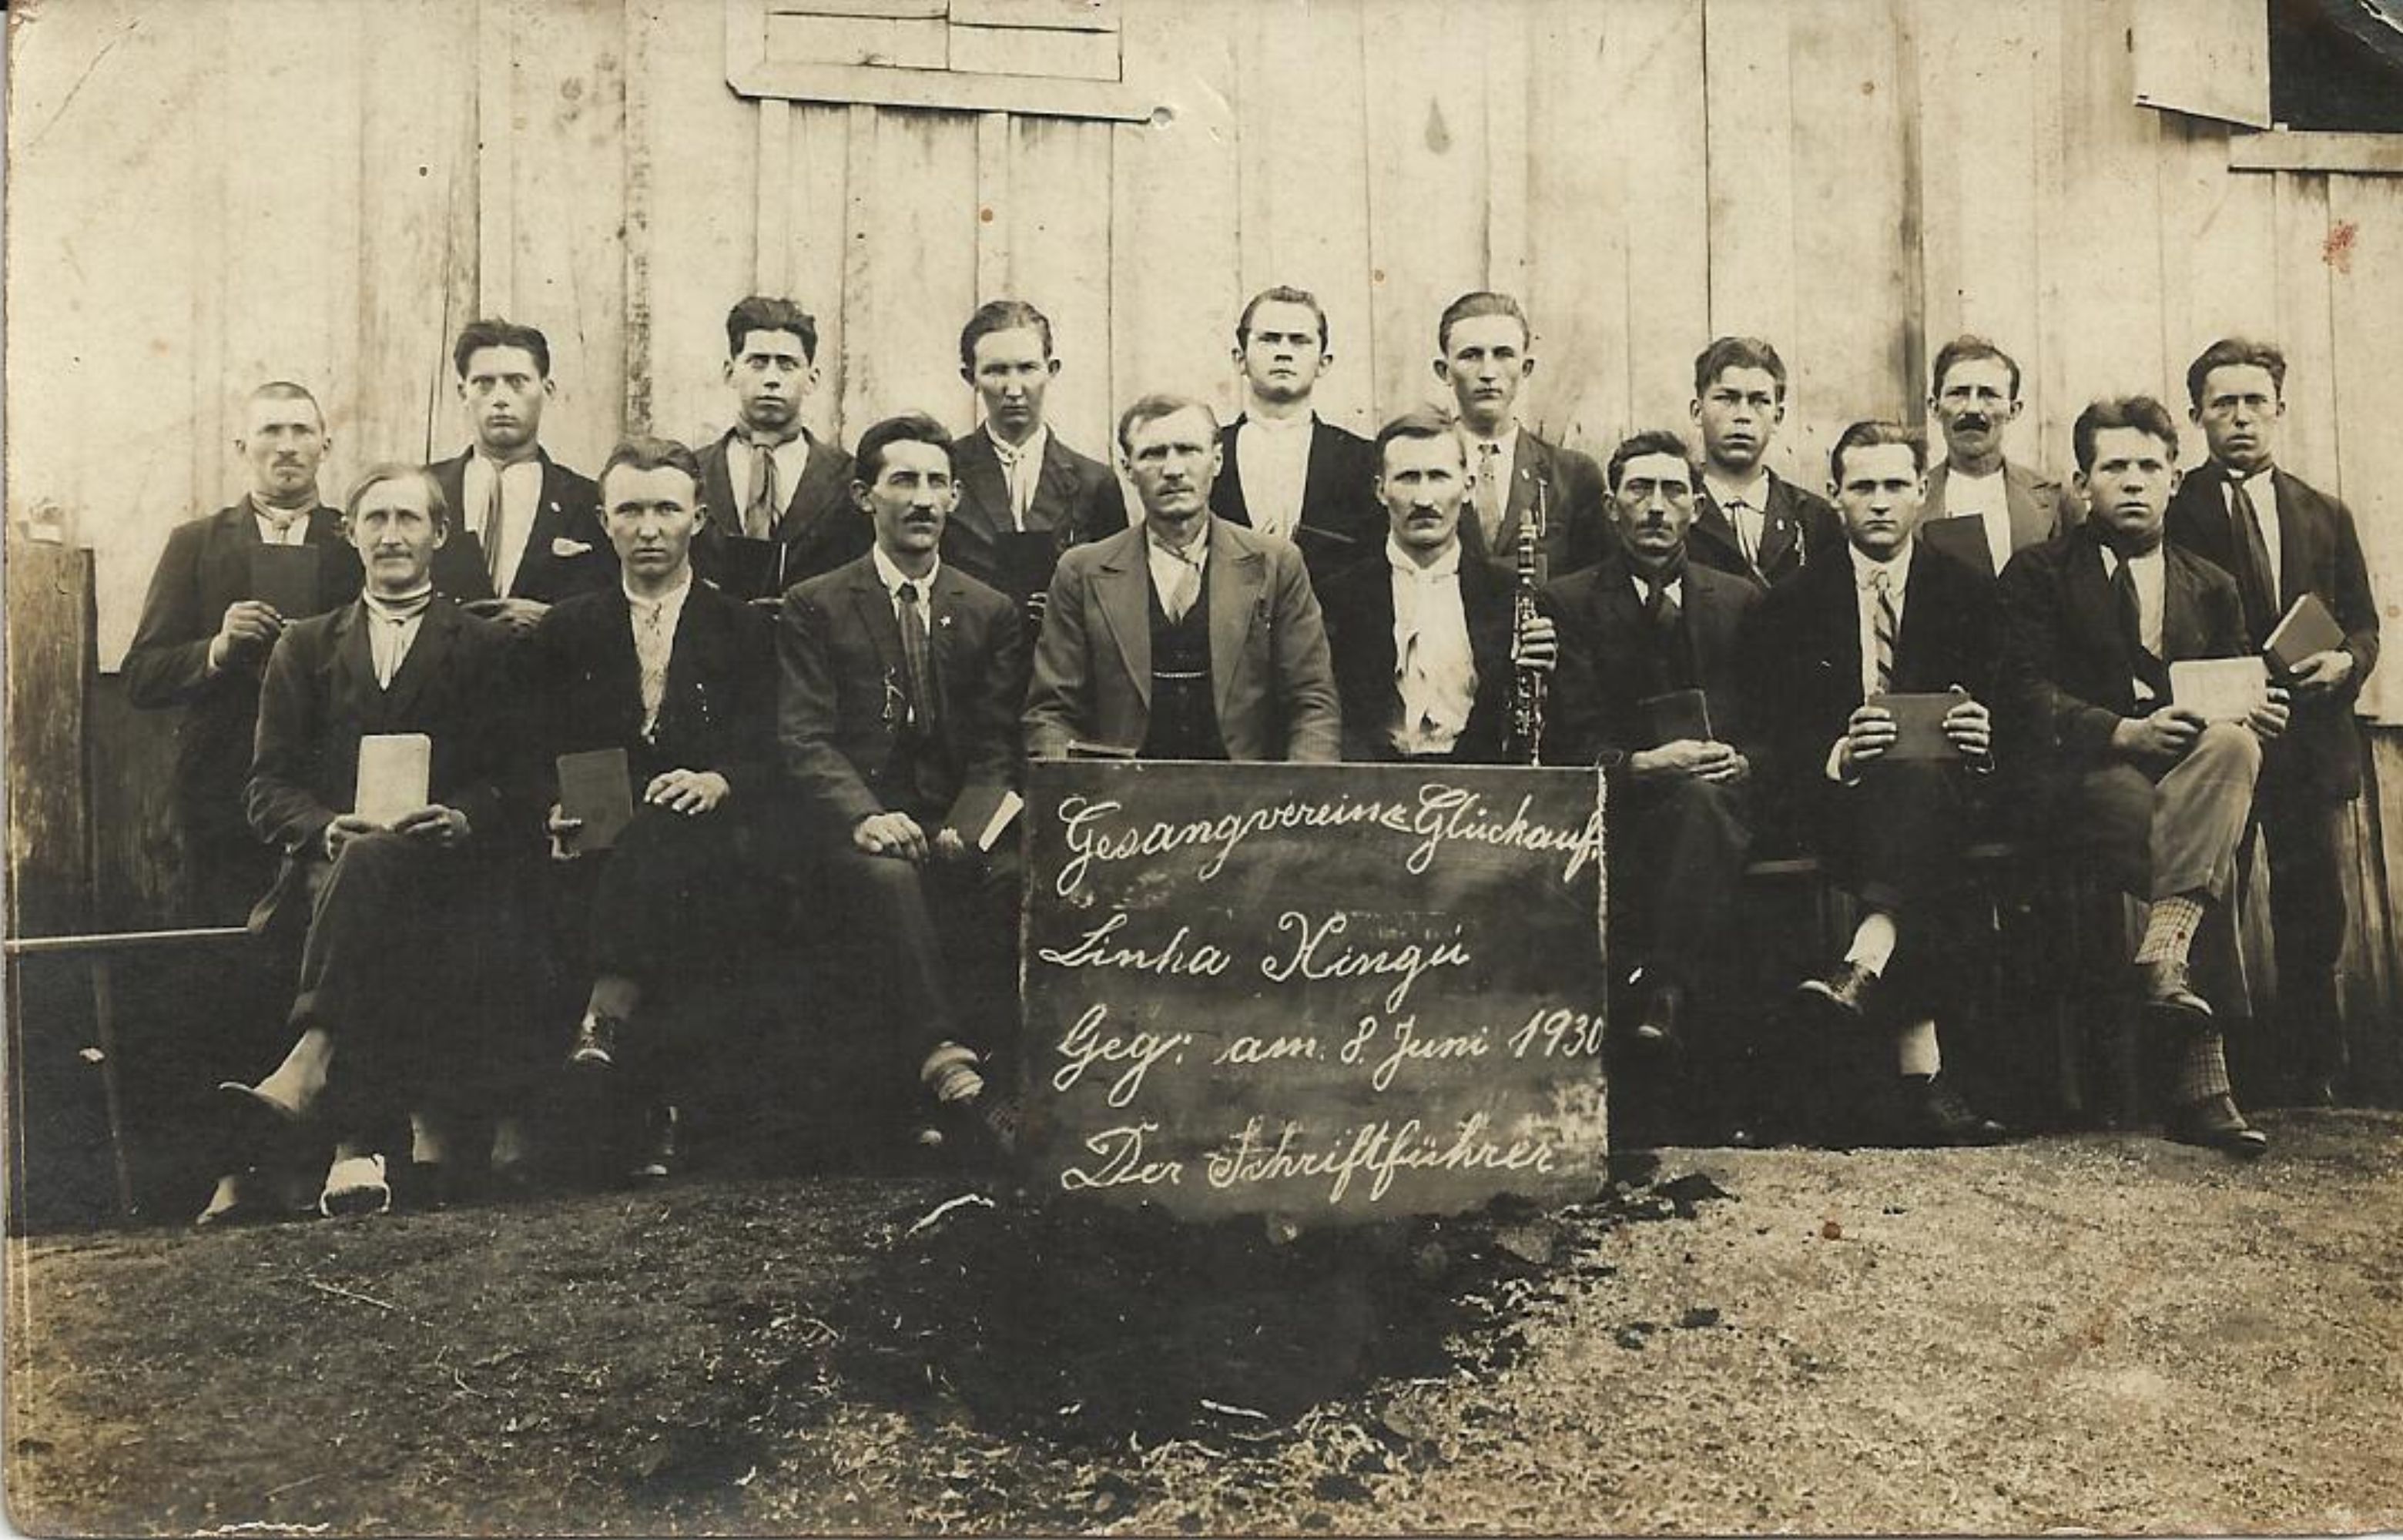 Gesangverein „Glückauf"
Linha Xingu
Geg: am 8. Juni 1930
Der Schriftführer